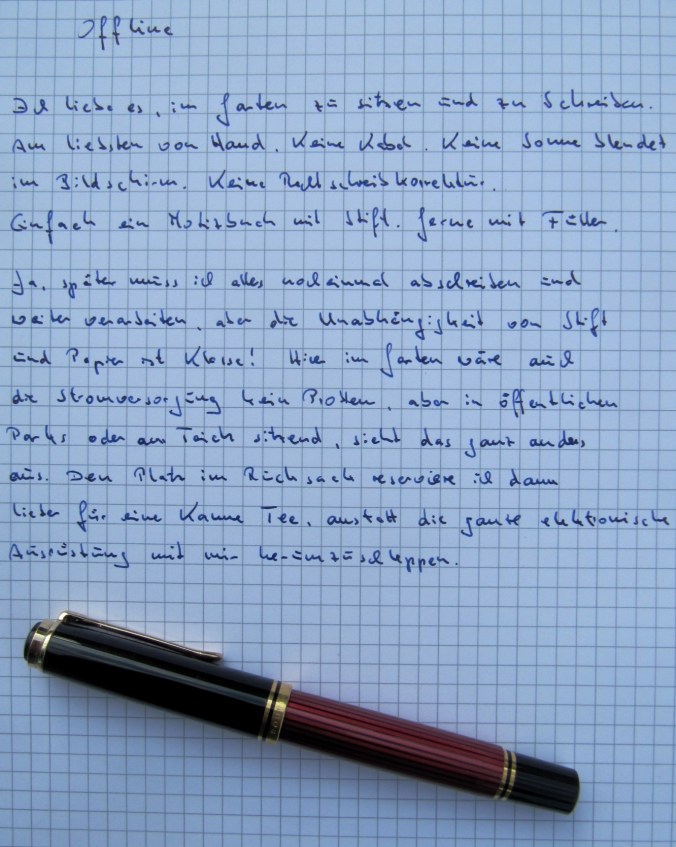 Offline
Ich liebe es, im Garten zu sitzen und zu Schreiben.
Am liebsten von Hand. Keine Kabel. Keine Sonne blendet
im Bildschirm. Keine Rechtschreibkorrektur.
Einfach ein Notizbuch mit Stift. Gerne mit Füller.
Ja, später muss ich alles noch einmal abschreiben und
weiter verarbeiten, aber die Unabhängigkeit von Stift
und Papier ist Klasse! Hier im Garten wäre auch
die Stromversorgung kein Problem, aber in öffentlichen
Parks oder am Teich sitzend, sieht das ganz anders
aus. Den Platz im Rucksack reserviere ich dann
lieber für eine Kanne Tee, anstatt die ganze elektronische
Ausrüstung mit mir herumzuschleppen.